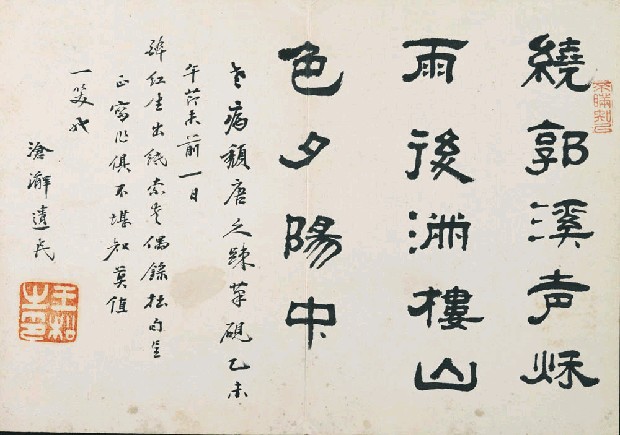 繞郭溪声秌
雨後滿樓山
色夕陽中
老病頹唐久疎筆硯乙未
午前一日
紅生出紙索書偶錄拙句呈
正俱不堪知莫值
一笑也
滄澥遺民
王松之印